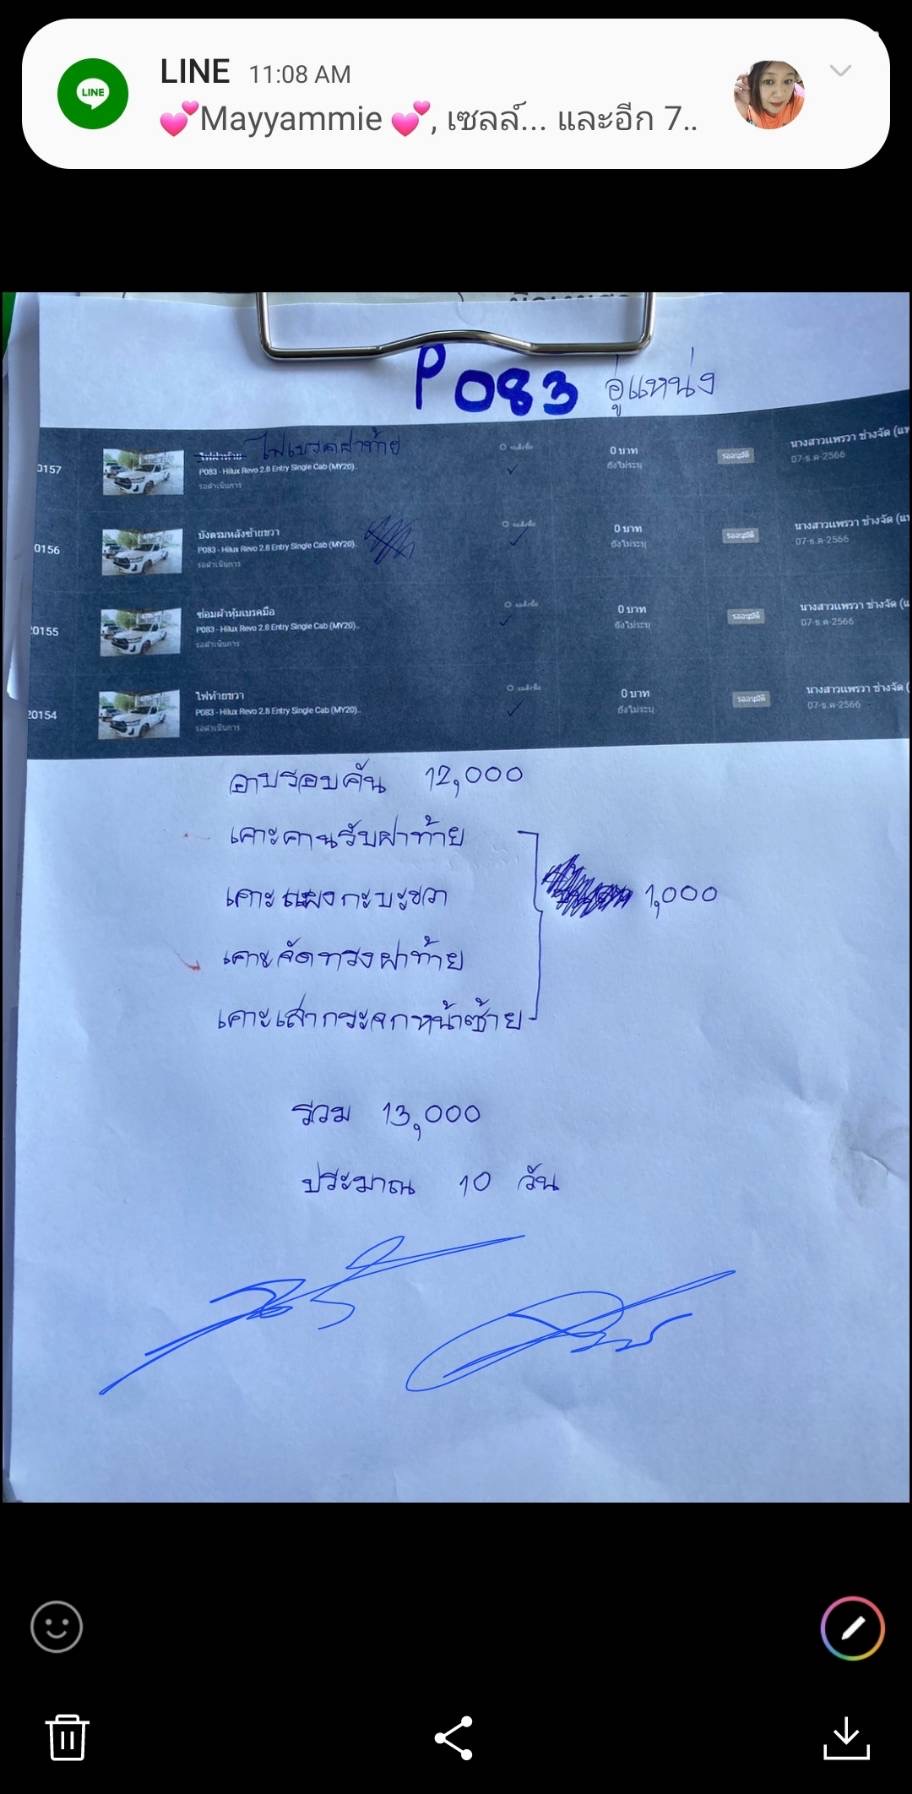 LINE 11:08 AM
💕Mayyammie 💕, เซลล์... และอีก 7..
P083 อู่แหน่ง
0157
ไฟเบรคฝาท้าย
P083 - Hilux Revo 2.8 Entry Single Cab (MY20).
รอดำเนินการ
รอสั่งซื้อ
0 บาท
ยังไม่ระบุ
รออนุมัติ
นางสาวแพรวา ช่างจัด (แพ
07-ธ.ค-2566
0156
บังลมหลังซ้ายขวา
P083 - Hilux Revo 2.8 Entry Single Cab (MY20).
รอดำเนินการ
รอสั่งซื้อ
0 บาท
ยังไม่ระบุ
รออนุมัติ
นางสาวแพรวา ช่างจัด (แ
07-ธ.ค-2566
0155
ซ่อมผ้าหุ้มเบรคมือ
P083 - Hilux Revo 2.8 Entry Single Cab (MY20)..
รอดำเนินการ
รอสั่งซื้อ
0 บาท
ยังไม่ระบุ
รออนุมัติ
นางสาวแพรวา ช่างจัด (แ
07-ธ.ค-2566
20154
ไฟท้ายขวา
P083 - Hilux Revo 2.8 Entry Single Cab (MY20)..
รอดำเนินการ
รอสั่งซื้อ
0 บาท
ยังไม่ระบุ
รออนุมัติ
นางสาวแพรวา ช่างจัด (
07-ธ.ค-2566
อาบรอบคัน 12,000
เคาะคานรับฝาท้าย
เคาะแผงกะบะขวา
1,000
เคาะจัดทรงฝาท้าย
เคาะเสากระจกหน้าซ้าย
รวม 13,000
ประมาณ 10 วัน